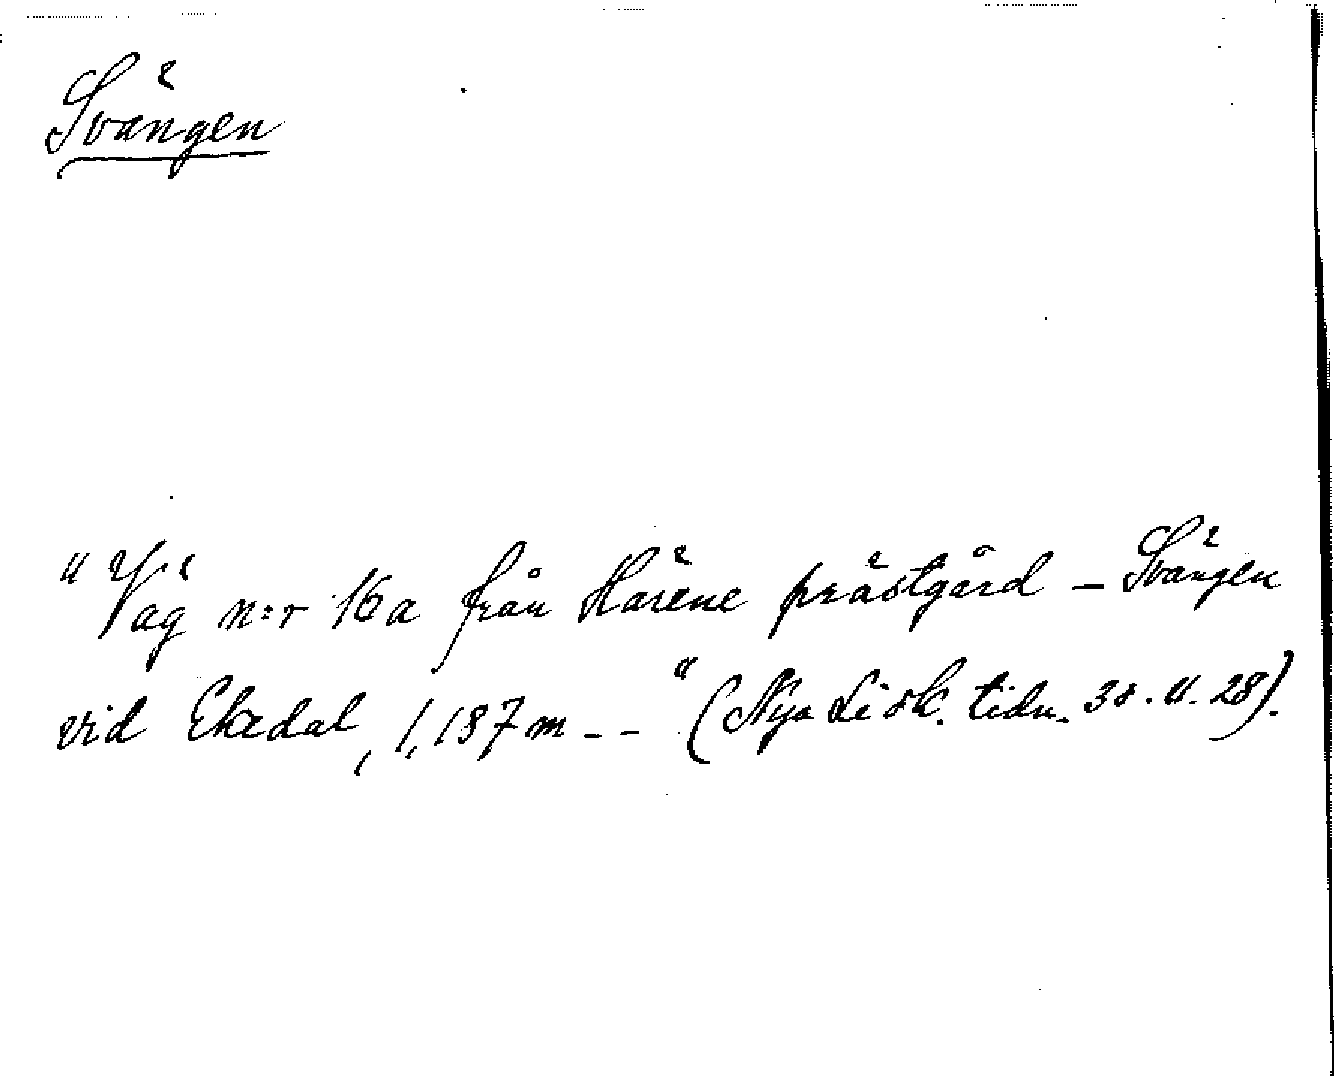 Svängen
"Väg n:r 16a från Härene prästgård – Svängen
vid Ekedal, 1,187 m - - " (Nya Lidk. tidn. 30.11.28).